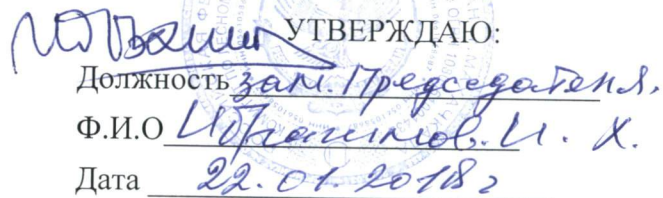 УТВЕРЖДАЮ:
Должность зам. Председателя.
Ф.И.О Ибрагимов. И. Х.
Дата 22.01.2018г